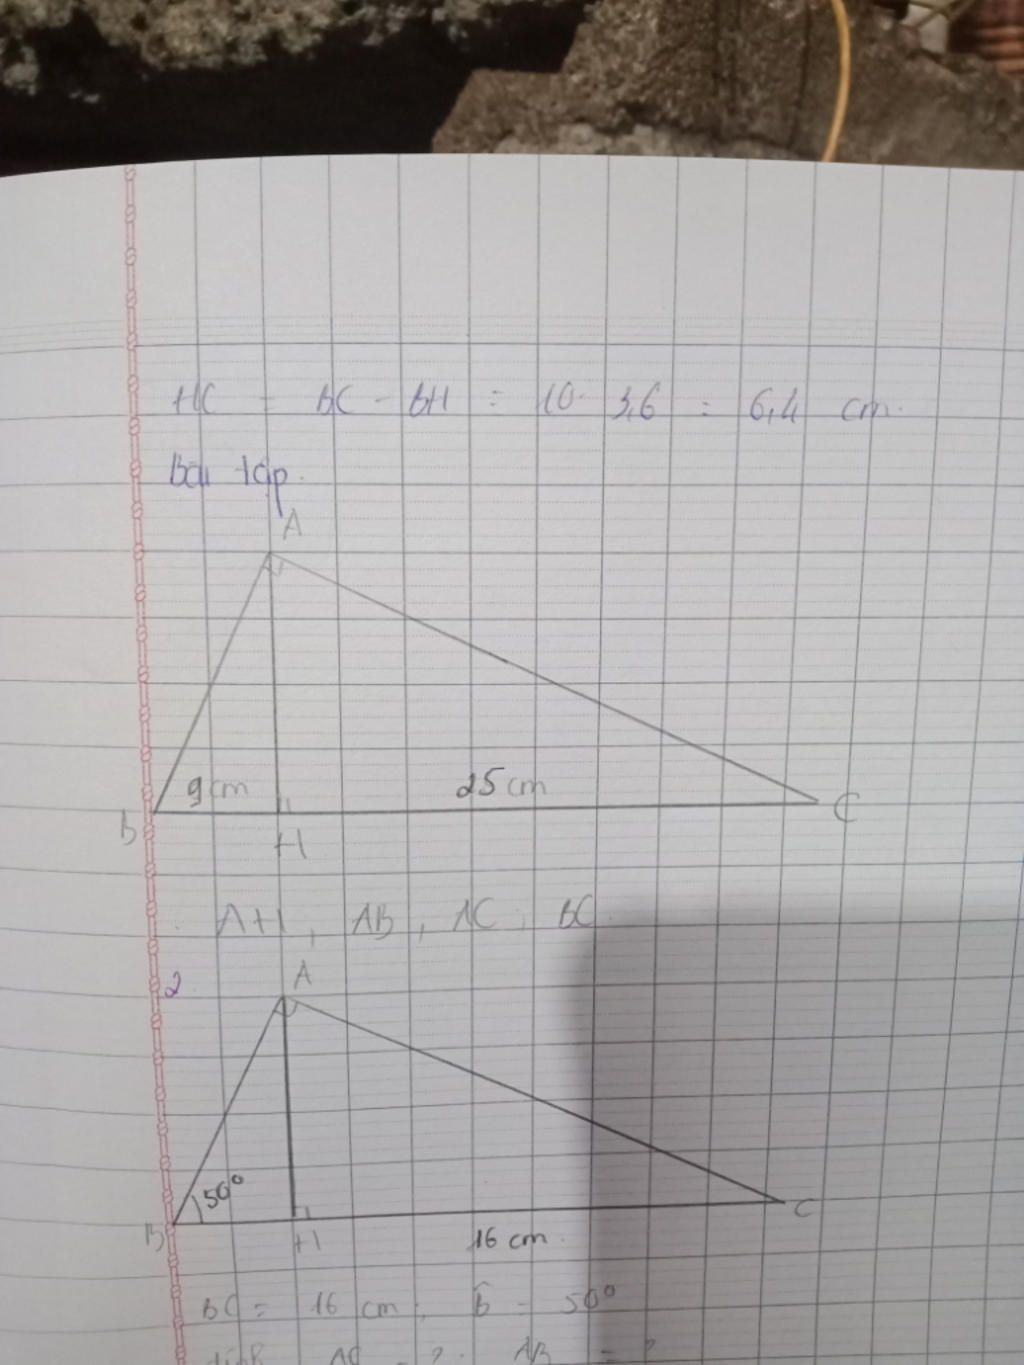 HC = BC - BH = 10 - 3,6 = 6,4 cm.
Bài tập.
A
9 cm
25 cm
B
H
C
AH, AB, AC, BC
2
A
50°
B
H
16 cm.
C
BC = 16 cm; B̂ = 50°
tính AC = ? ; AB = ?